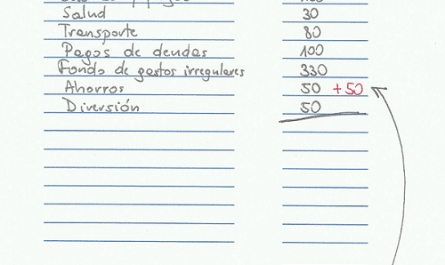 Salud 30
Transporte 80
Pagos de deudas 100
Fondo de gastos irregulares 330
Ahorros 50 +50
Diversión 50